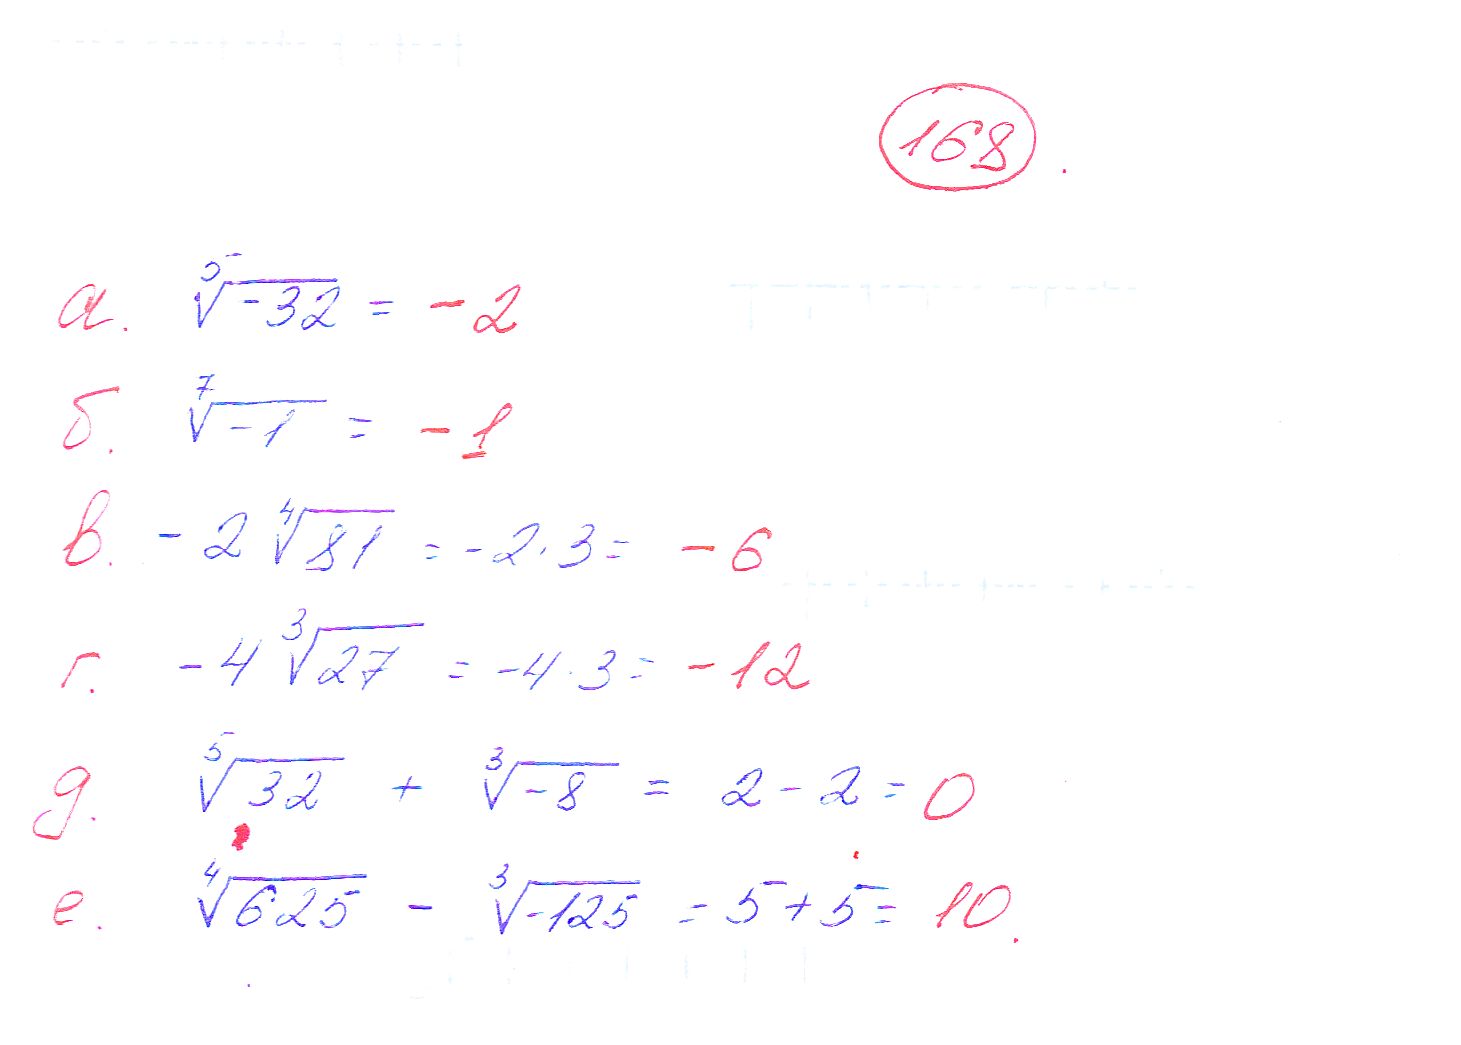 168.
а. ⁵√-32 = -2
б. ⁷√-1 = -1
в. -2 ⁴√81 = -2·3 = -6
г. -4 ³√27 = -4·3 = -12
д. ⁵√32 + ³√-8 = 2-2=0
е. ⁴√625 - ³√-125 = 5+5=10.